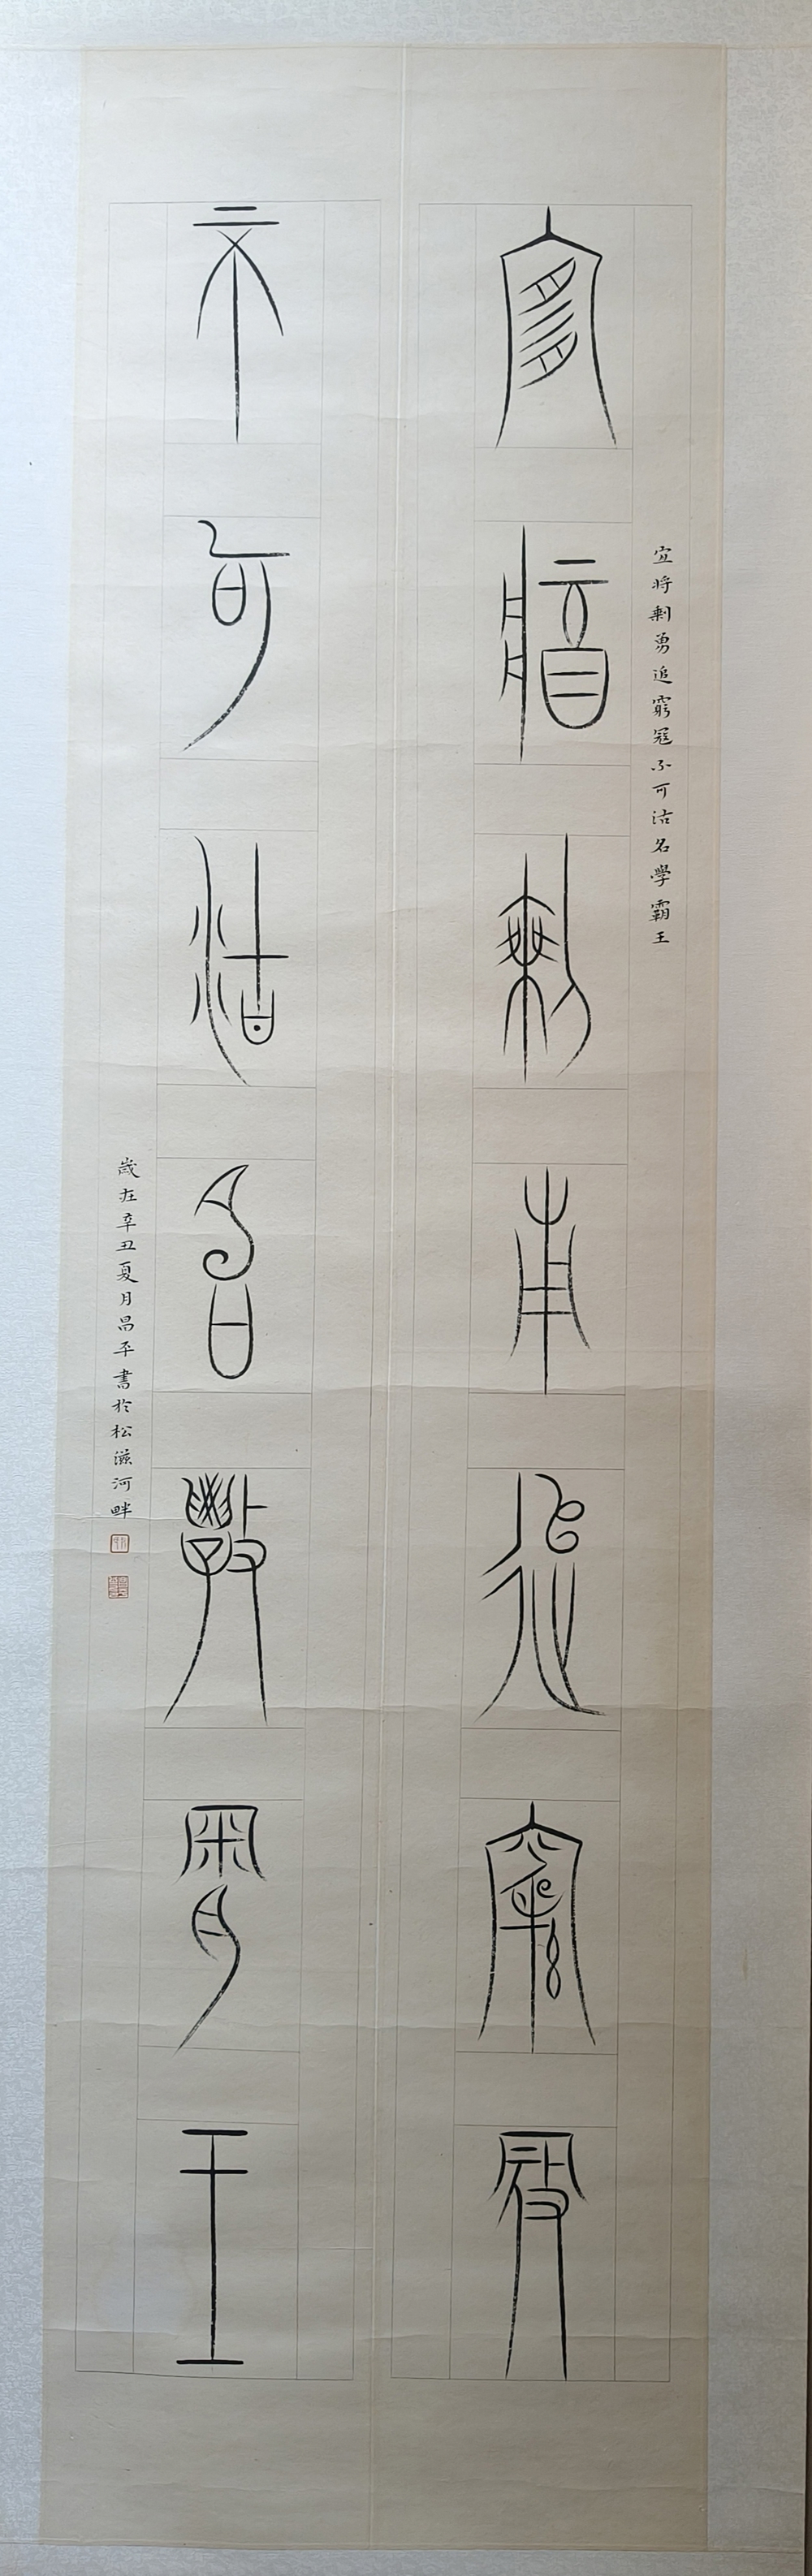 宜將剩勇追窮寇
宜将剩勇追窮寇不可沽名學霸王
不可沽名學霸王
歲在辛丑夏月昌平書於松滋河畔